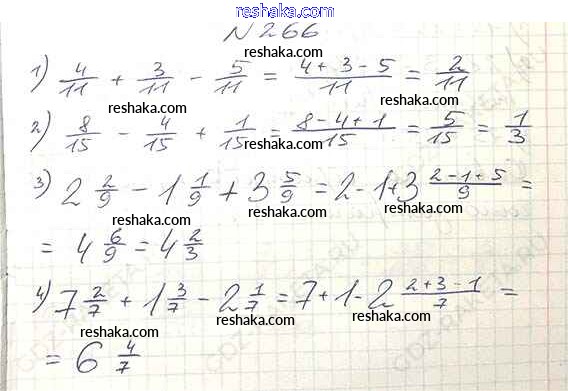 reshaka.com
N 266
reshaka.com
1) 4/11 + 3/11 - 5/11 = (4+3-5)/11 = 2/11
reshaka.com reshaka.com reshaka.com
2) 8/15 - 4/15 + 1/15 = (8-4+1)/15 = 5/15 = 1/3
reshaka.com reshaka.com
3) 2 2/9 - 1 1/9 + 3 5/9 = 2-1+3 (2-1+5)/9 =
reshaka.com reshaka.com
= 4 6/9 = 4 2/3
reshaka.com
4) 7 2/7 + 1 3/7 - 2 1/7 = 7+1-2 (2+3-1)/7 =
reshaka.com reshaka.com reshaka.com
= 6 4/7
reshaka.com
reshaka.com